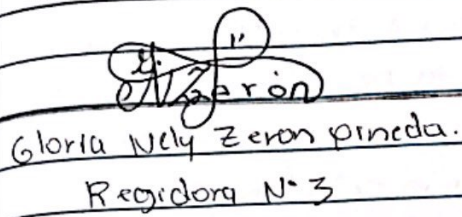 NZerón
Gloria Nely Zeron pineda.
Regidora N° 3